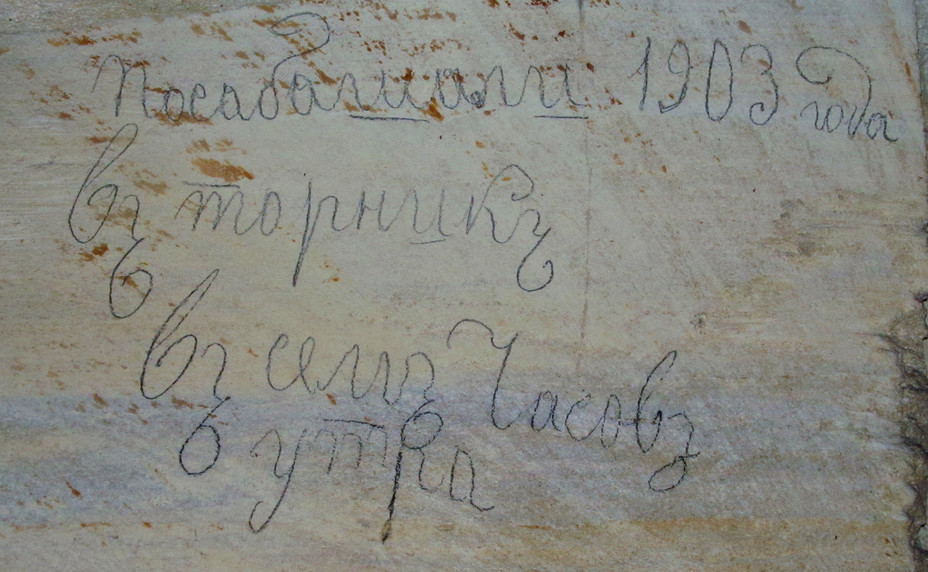 Посабашали 1903 года
въ торникъ
въ семъ Часовъ
утра